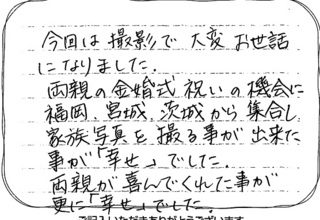 今回は撮影で大変お世話
になりました.
両親の金婚式祝いの機会に
福岡、宮城、茨城から集合し
家族写真を撮る事が出来た
事が「幸せ」でした.
両親が喜んでくれた事が
更に「幸せ」でした.
ご記入いただきありがとうございます